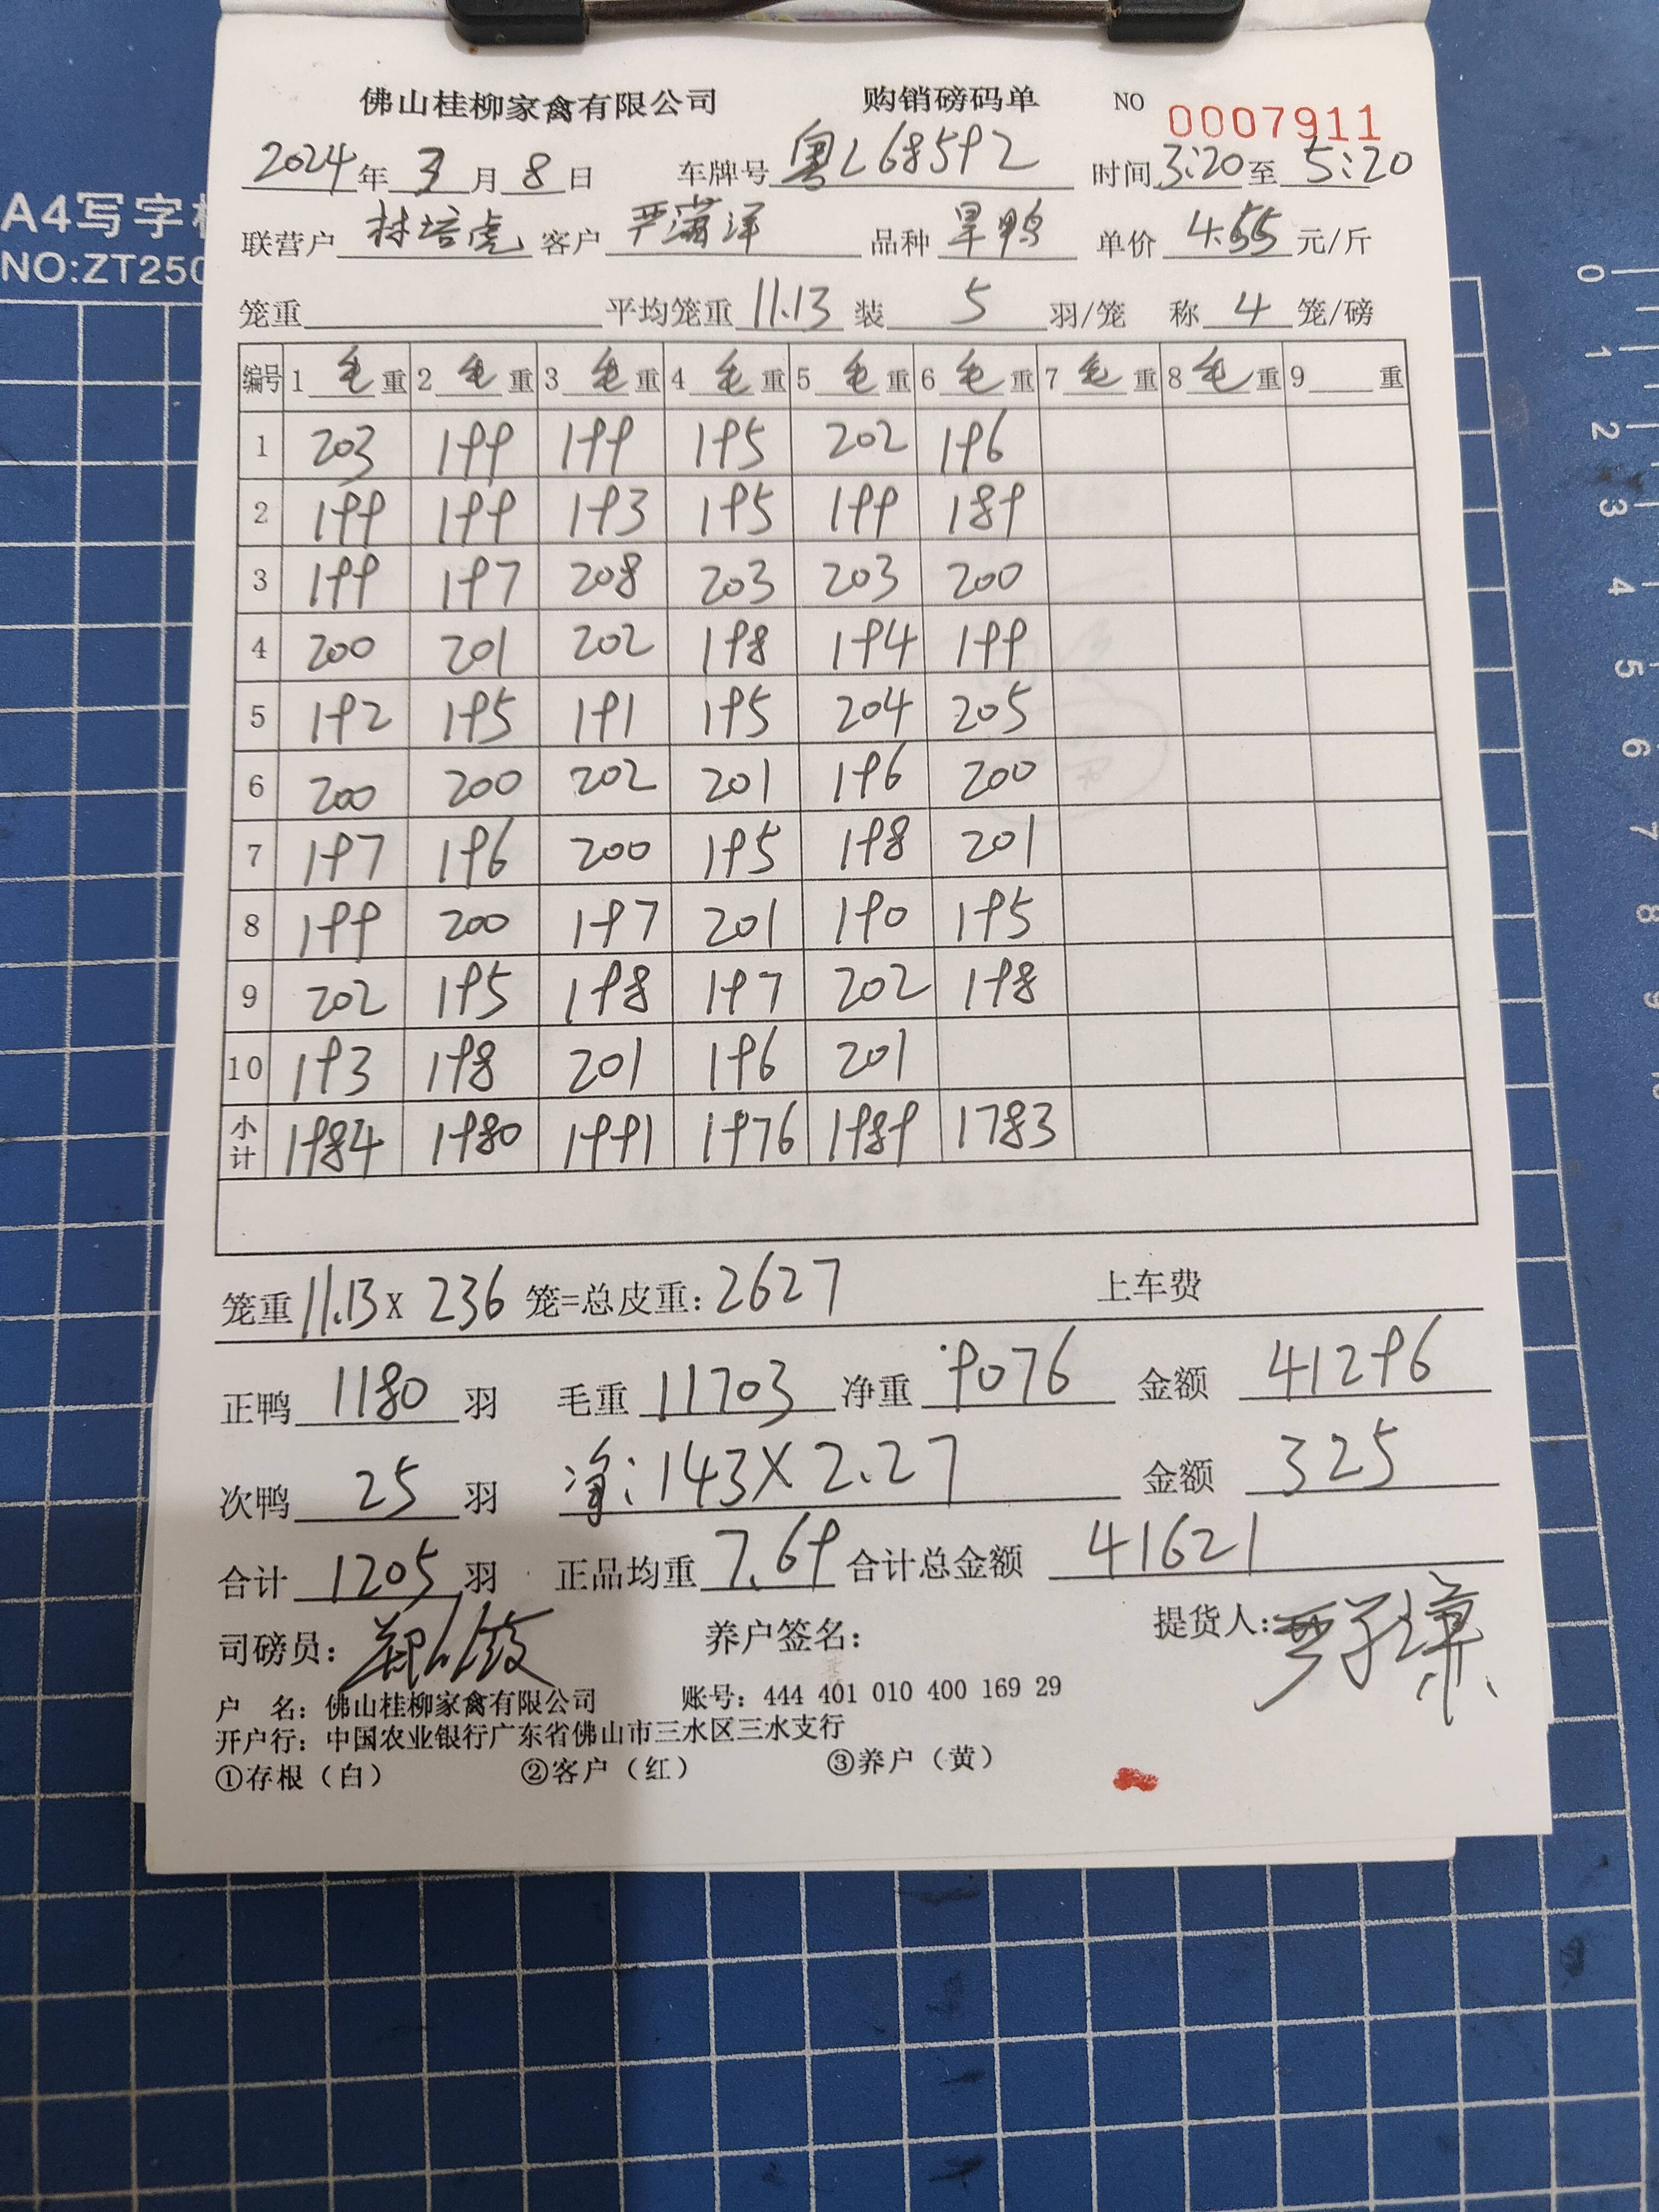 佛山桂柳家禽有限公司 购销磅码单 NO 0007911
2024年 3 月 8 日 车牌号 粤L68592 时间 3:20 至 5:20
联营户 林培虎 客户 严潇洋 品种 旱鸭 单价 4.55 元/斤
笼重 平均笼重 11.13 装 5 羽/笼 称 4 笼/磅
编号 1 毛重 2 毛重 3 毛重 4 毛重 5 毛重 6 毛重 7 毛重 8 毛重 9 重
1 203 199 199 195 202 196
2 199 199 193 195 199 189
3 199 197 208 203 203 200
4 200 201 202 198 194 199
5 192 195 191 195 204 205
6 200 200 202 201 196 200
7 197 196 200 195 198 201
8 199 200 197 201 190 195
9 202 195 198 197 202 198
10 193 198 201 196 201
小计 1984 1980 1991 1976 1989 1783
笼重 11.13 X 236 笼=总皮重: 2627 上车费
正鸭 1180 羽 毛重 11703 净重 9076 金额 41296
次鸭 25 羽 净: 143 X 2.27 金额 325
合计 1205 羽 正品均重 7.69 合计总金额 41621
司磅员: 养户签名: 提货人:
户 名: 佛山桂柳家禽有限公司 账号: 444 401 010 400 169 29
开户行: 中国农业银行广东省佛山市三水区三水支行
①存根（白） ②客户（红） ③养户（黄）
A4写字
NO:ZT250
0
1
2
3
4
5
6
7
8
9
10